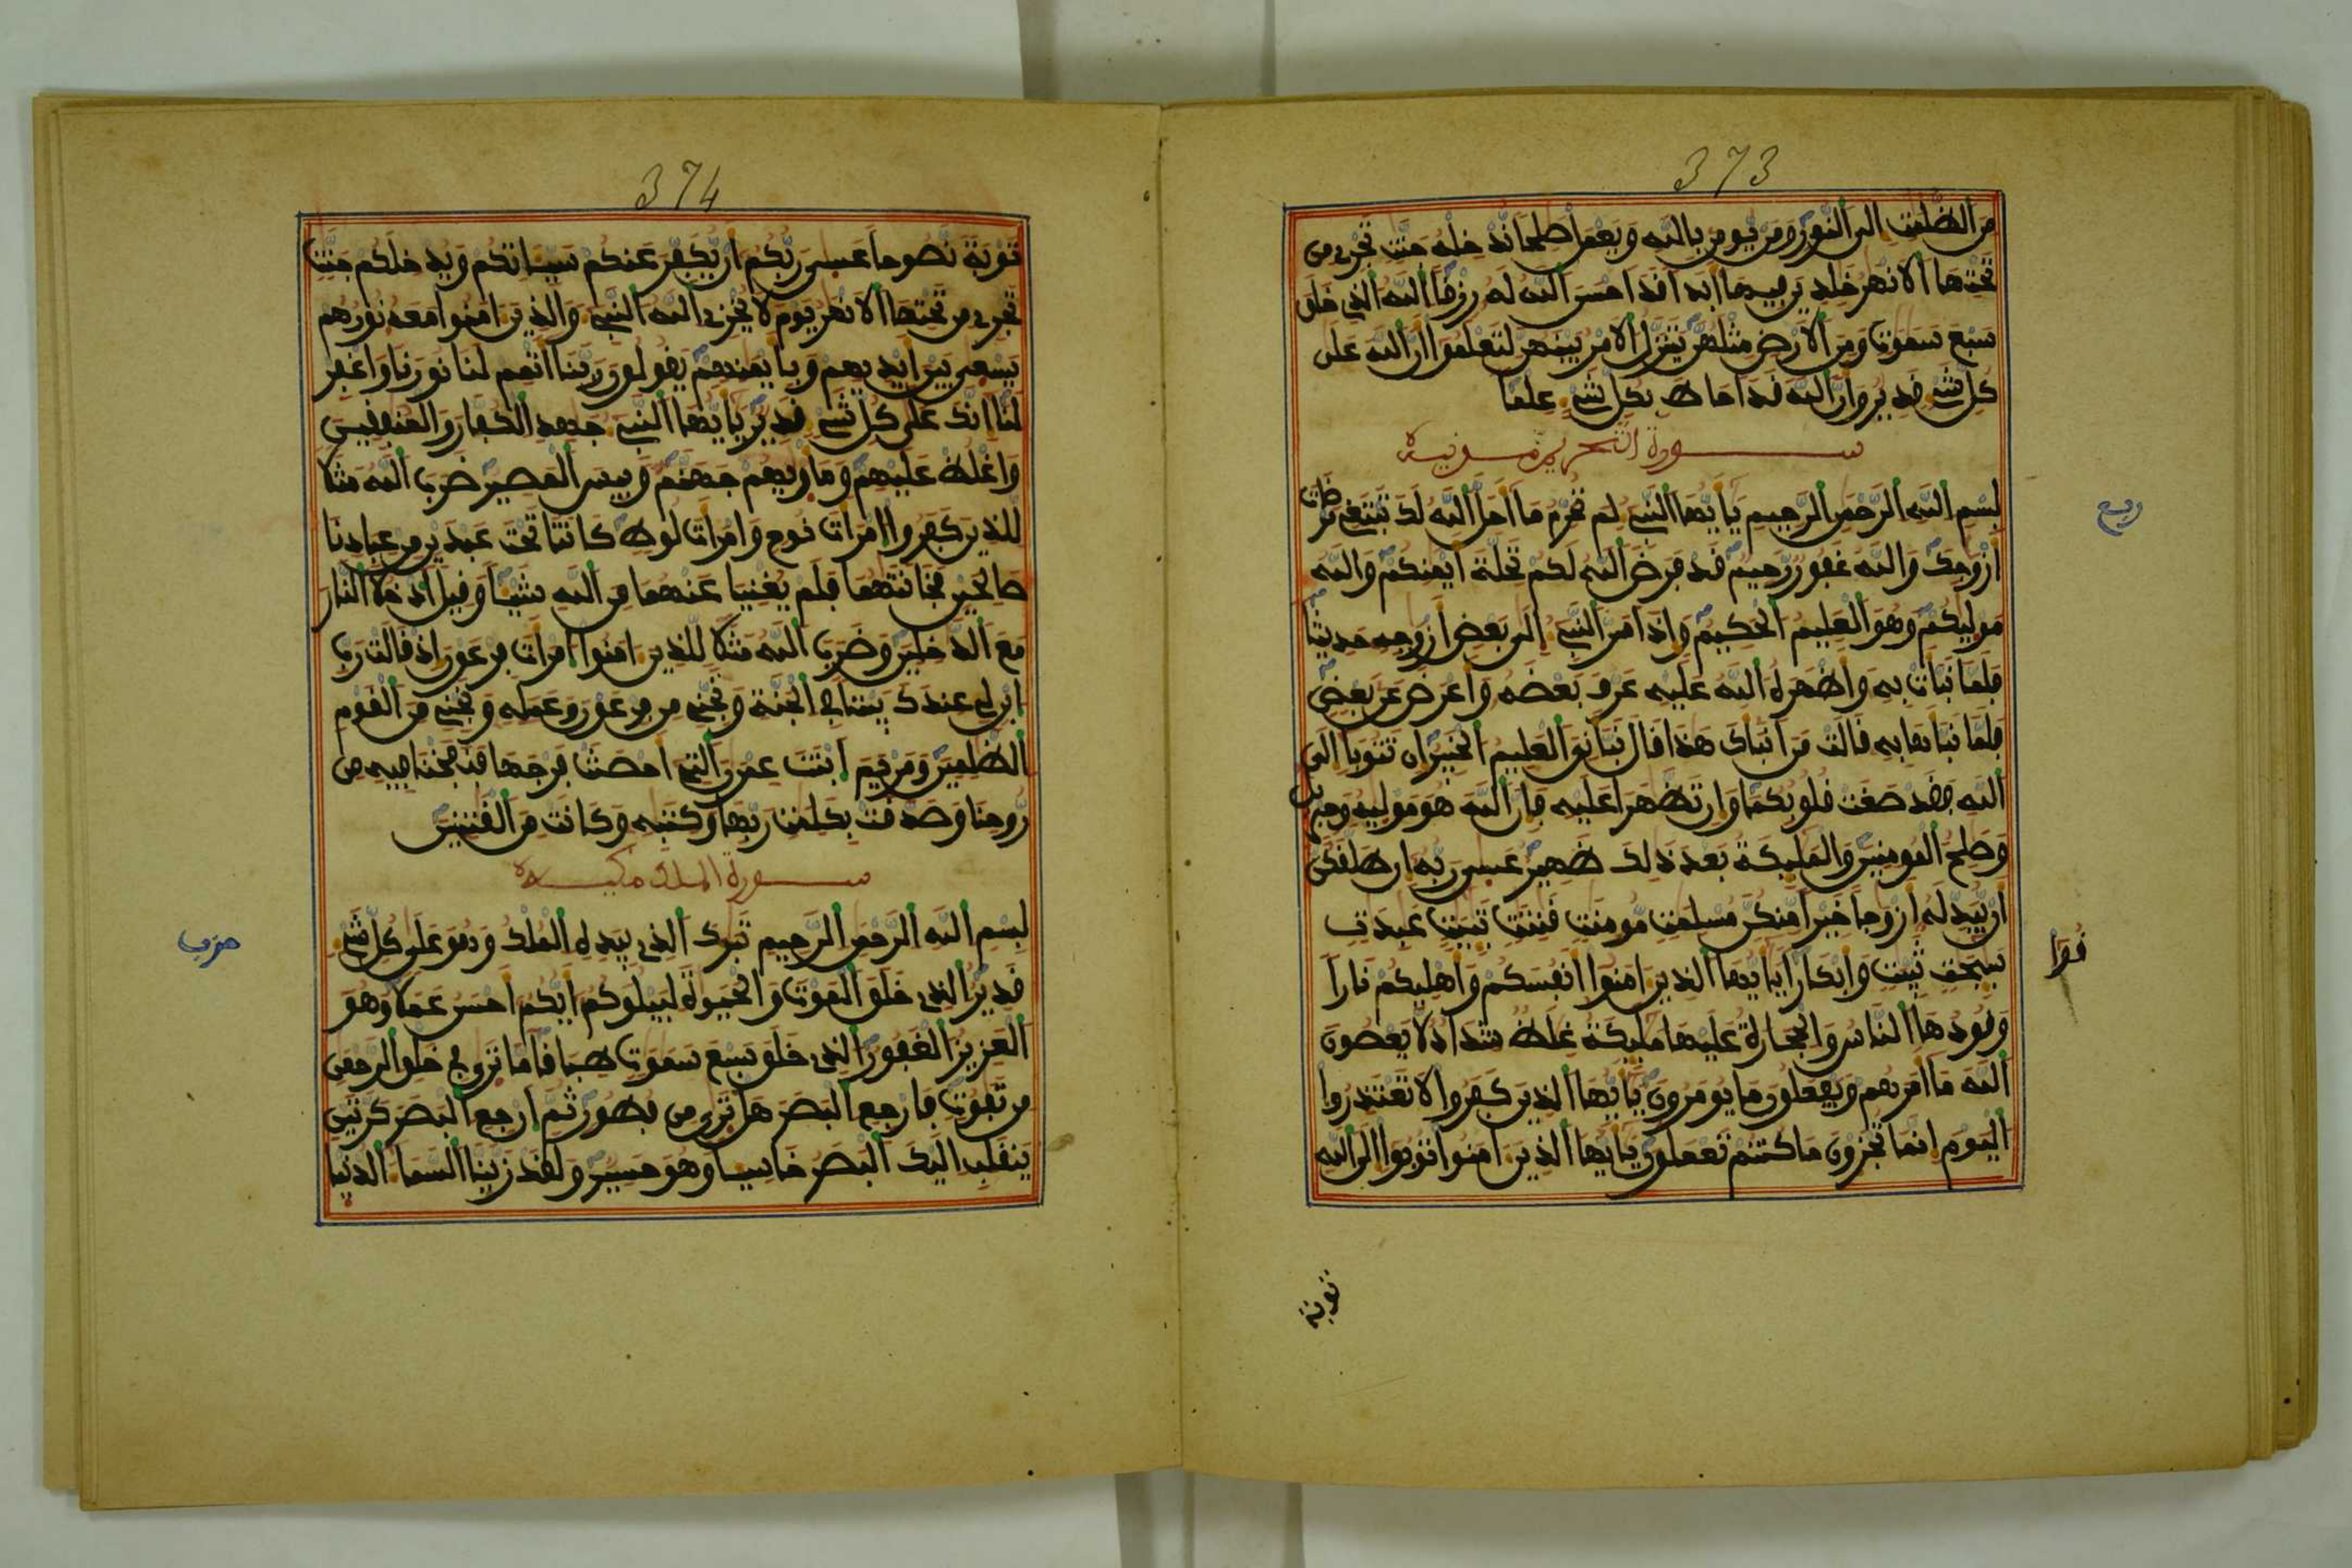 373
من الظلمت الى النور ومن يومن بالله ويعمل صلحا ندخله جنت تجرى من
تحتها الانهر خلدين فيها ابدا قد احسن الله له رزقا الله الذى خلق
سبع سموت ومن الارض مثلهن يتنزل الامر بينهن لتعلموا ان الله على
كل شىء قدير وان الله قد احاط بكل شىء علما
سورة التحريم مدنية
بسم الله الرحمن الرحيم يايها النبىء لم تحرم ما احل الله لك تبتغى مرضات
ازوجك والله غفور رحيم قد فرض الله لكم تحلة ايمنكم والله
موليكم وهو العليم الحكيم واذ اسر النبىء الى بعض ازوجه حديثا
فلما نبات به واظهره الله عليه عرف بعضه واعرض عن بعض
فلما نباها به قالت من انباك هذا قال نبانى العليم الخبير ان تتوبا الى
الله فقد صغت قلوبكما وان تظهرا عليه فان الله هو موليه وجبريل
وصلح المومنين والمليكة بعد ذلك ظهير عسى ربه ان طلقكن
ان يبدله ازوجا خيرا منكن مسلمت مومنت قنتت تيبت عبدت
سيحت ثيبت وابكارا يايها الذين امنوا انفسكم واهليكم نارا
قوا
وقودها الناس والحجارة عليها مليكة غلاظ شداد لا يعصون
الله ما امرهم ويفعلون ما يومرون يايها الذين كفروا لا تعتذروا
اليوم انما تجزون ما كنتم تعملون يايها الذين امنوا توبوا الى الله
توبة
ربع
374
توبة نصوحا عسى ربكم ان يكفر عنكم سيياتكم ويدخلكم جنت
تجرى من تحتها الانهر يوم لا يخزى الله النبىء والذين امنوا معه نورهم
يسعى بين ايديهم وبايمنهم يقولون ربنا اتمم لنا نورنا واغفر
لنا انك على كل شىء قدير يايها النبىء جهد الكفار والمنفقين
واغلظ عليهم وماويهم جهنم وبيس المصير ضرب الله مثلا
للذين كفروا امرات نوح وامرات لوط كانتا تحت عبدين من عبادنا
صلحين فخانتهما فلم يغنيا عنهما من الله شيئا وقيل ادخلا النار
مع الدخلين وضرب الله مثلا للذين امنوا امرات فرعون اذ قالت رب
ابن لى عندك بيتا فى الجنة ونجنى من فرعون وعمله ونجنى من القوم
الظلمين ومريم ابنت عمرن التى احصنت فرجها فنفخنا فيه من
روحنا وصدقت بكلمت ربها وكتبه وكانت من القنتين
سورة الملك مكية
بسم الله الرحمن الرحيم تبرك الذى بيده الملك وهو على كل شىء
قدير الذى خلق الموت والحيوة ليبلوكم ايكم احسن عملا وهو
العزيز الغفور الذى خلق سبع سموت طباقا ما ترى فى خلق الرحمن
من تفوت فارجع البصر هل ترى من فطور ثم ارجع البصر كرتين
ينقلب اليك البصر خاسيا وهو حسير ولقد زينا السماء الدنيا
حزب